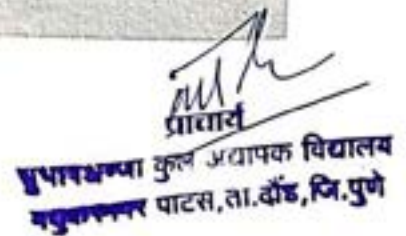 प्राचार्य
कुल अध्यापक विद्यालय
पाटस, ता.दौंड, जि.पुणे